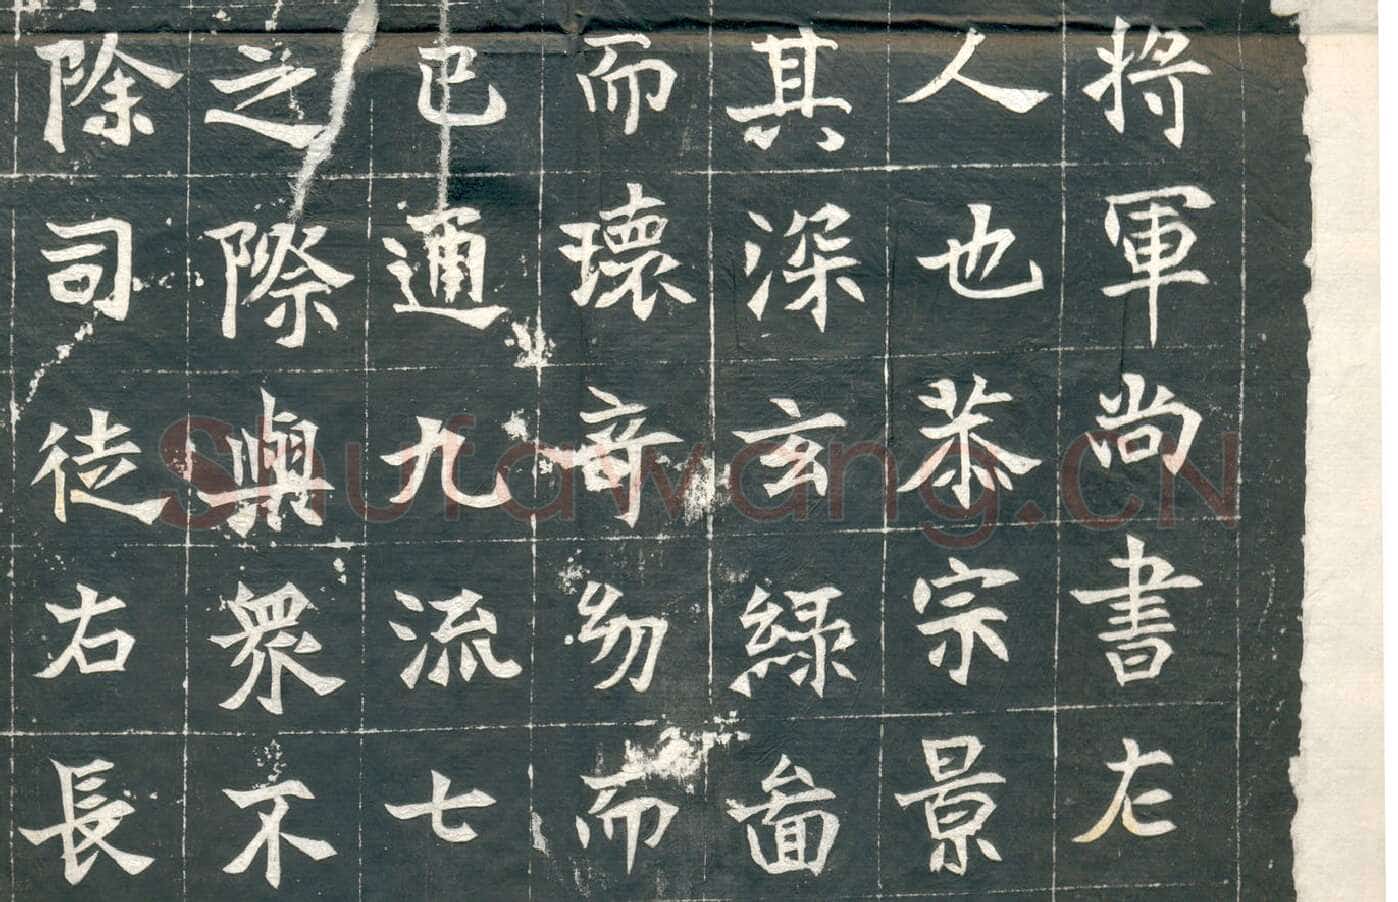 將軍尚書左
人也恭宗景
其深玄綠圖
而瓌竒幼而
已通九流七
之際與眾不
除司徒右長
Shufawang.CN